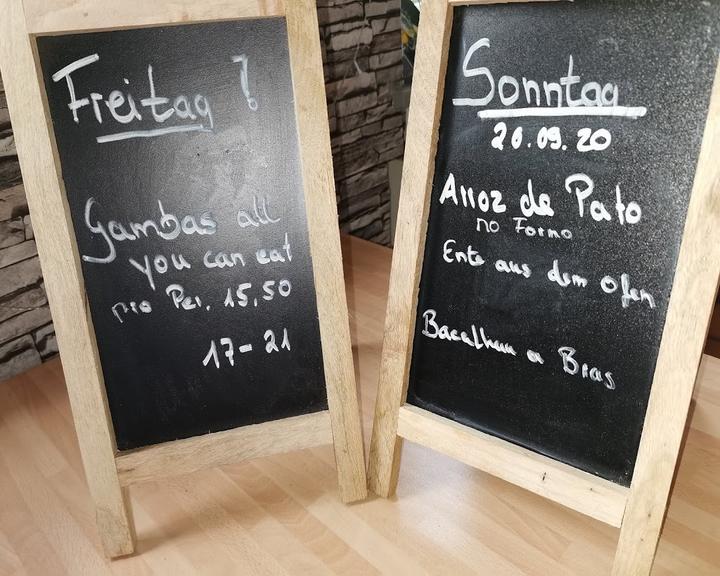 Freitag !
Gambas all
you can eat
pro Per. 15,50
17-21
Sonntag
20.09.20
Arroz de Pato
no Forno
Ente aus dem Ofen
Bacalhau a Bras